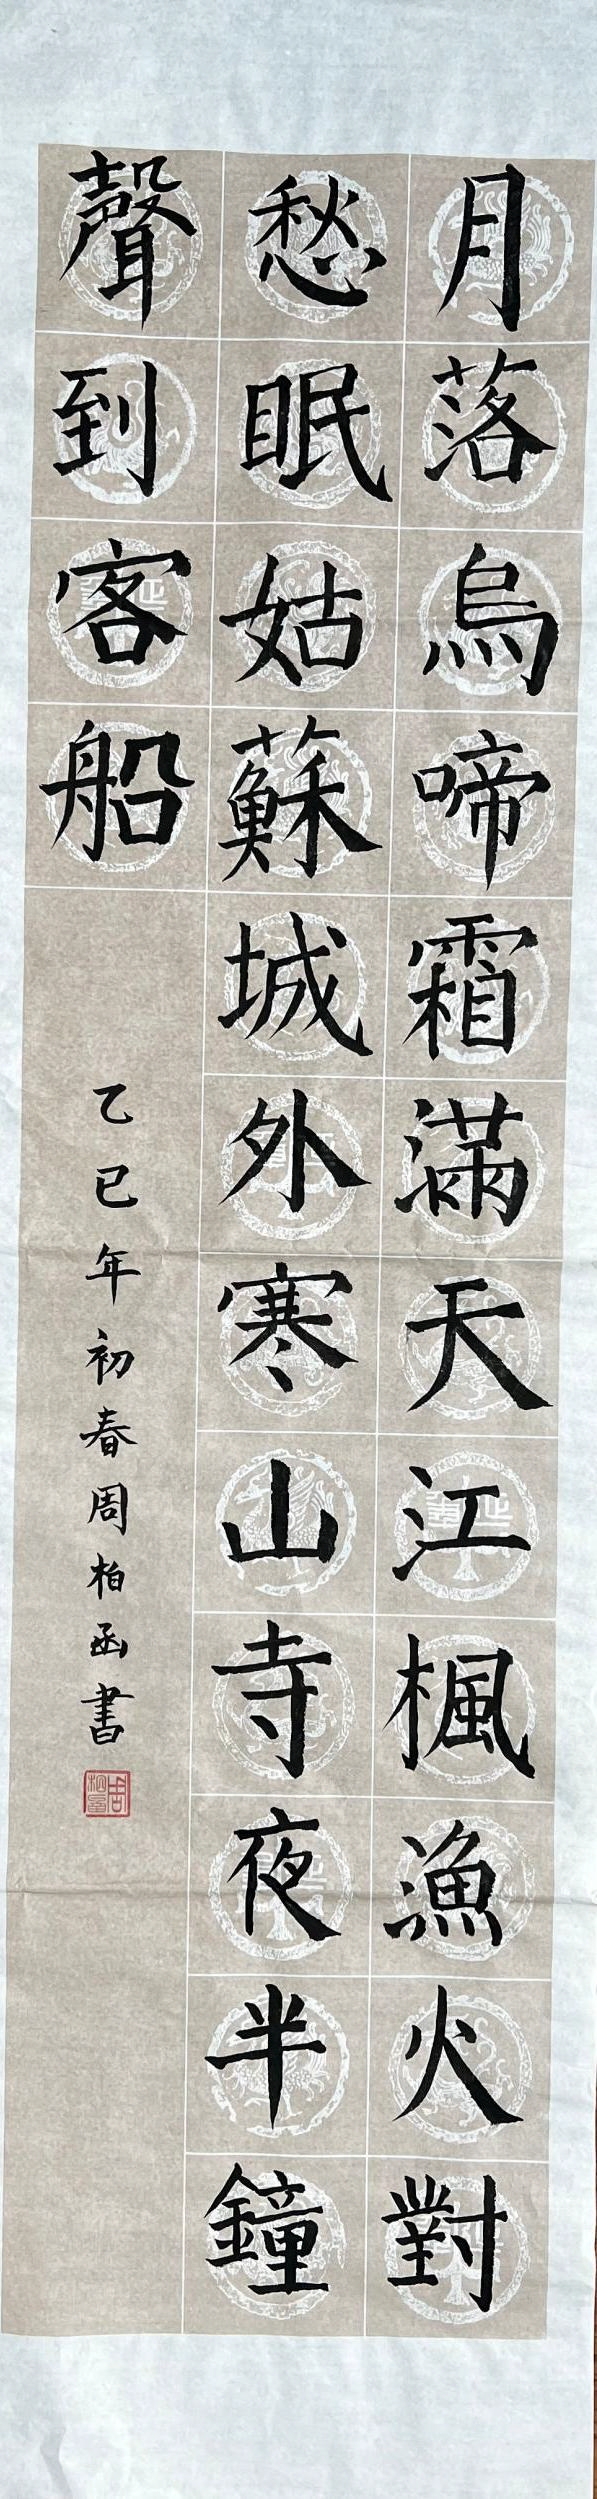 月落烏啼霜滿天江楓漁火對
愁眠姑蘇城外寒山寺夜半鐘
聲到客船
乙巳年初春周柏函書